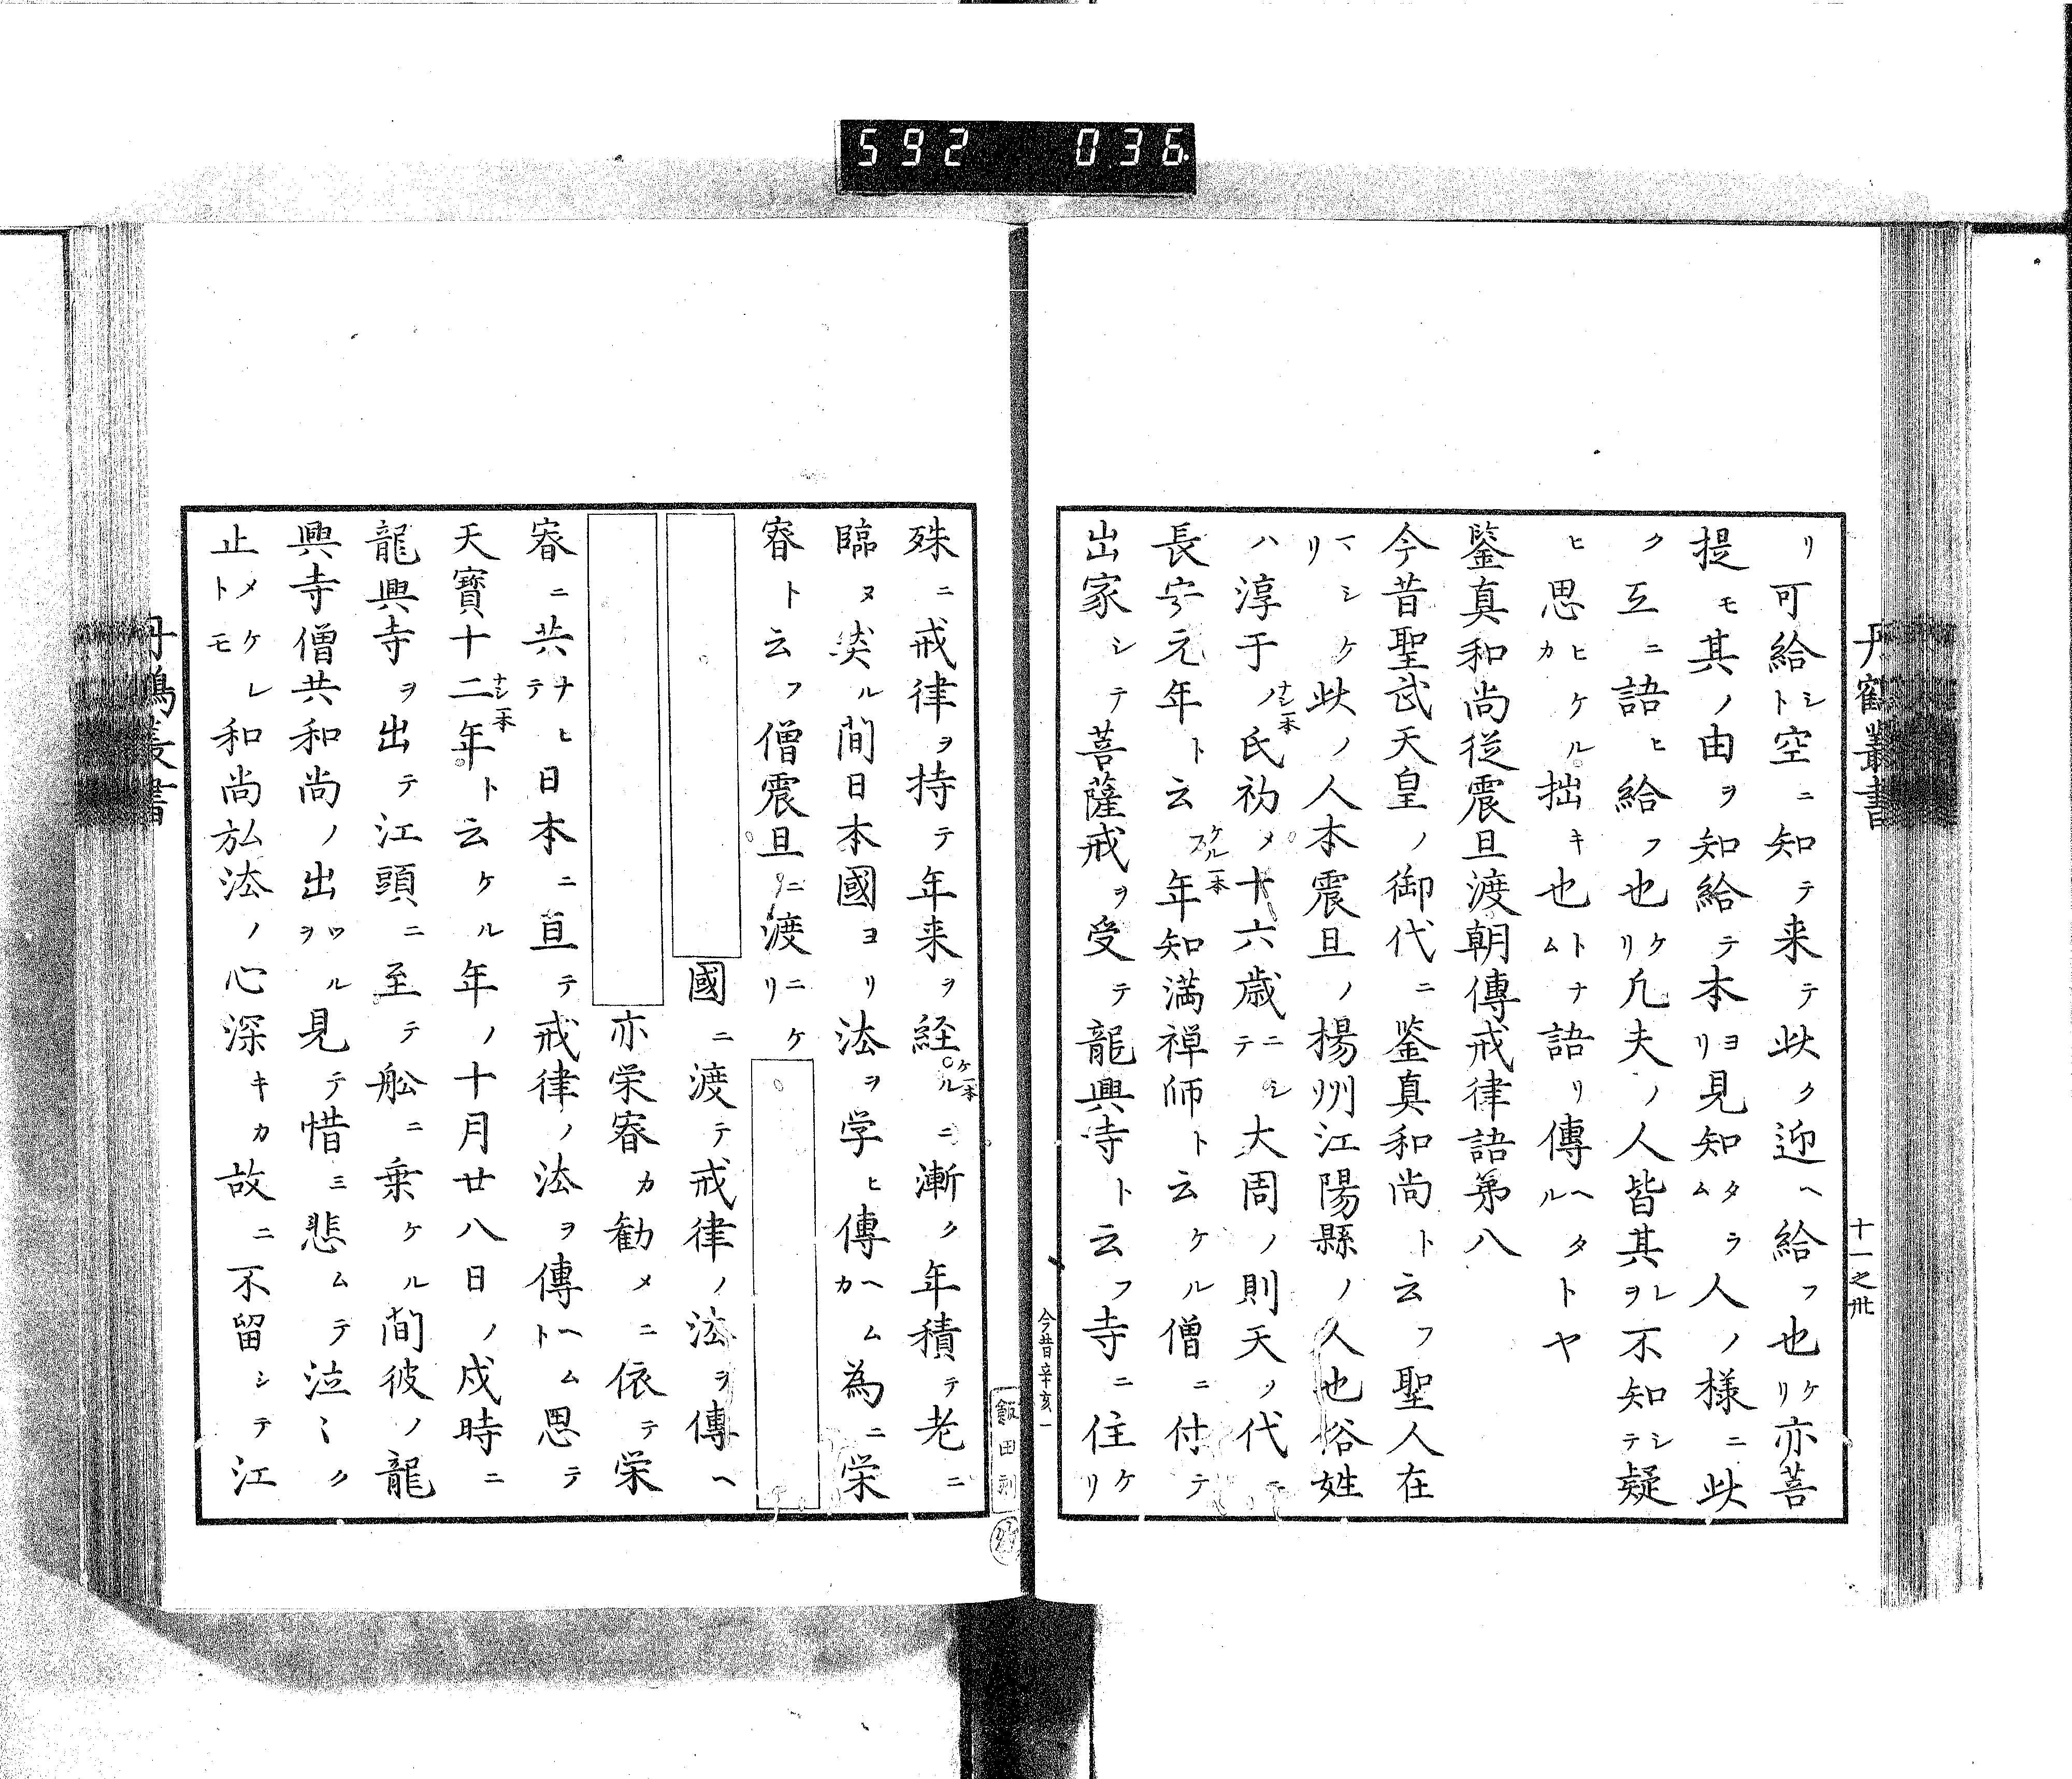 592 036
丹鶴叢書
十一之卅
リ可給シト空ニ知テ来テ此ク迎ヘ給フ也ケリ亦菩
提モ其ノ由ヲ知給テ本ヨリ見知タラム人ノ様ニ此
ク互ニ語ヒ給フ也ケリ凡夫ノ人皆其レヲ不知シテ疑
ヒ思ヒケルカ拙キ也トナム語リ傳ヘタルトヤ
鑒真和尚從震旦渡朝傳戒律語第八
今昔聖武天皇ノ御代ニ鑒真和尚ト云フ聖人在
マシケリ此ノ人本震旦ノ揚州江陽縣ノ人也俗姓
ハ淳于ノナシ一本氏初メ十六歳ニシテ大周ノ則天ノ代ニ
長安元年ト云フケル一本年知満禅師ト云ケル僧ニ付テ
出家シテ菩薩戒ヲ受テ龍興寺ト云フ寺ニ住ケリ
今昔辛亥一
飯田刻
殊ニ戒律ヲ持テ年来ヲ経ケル一本ニ漸ク年積テ老ニ
臨ヌ然ル間日本國ヨリ法ヲ学ヒ傳ヘムカ為ニ栄
睿ト云フ僧震旦ニ渡ニケリ
國ニ渡テ戒律ノ法ヲ傳ヘ
亦栄睿カ勧メニ依テ栄
睿ニ共ナヒテ日本ニ亘テ戒律ノ法ヲ傳ヘムト思テ
天寶十二ナシ一本年ト云ケル年ノ十月廿八日ノ戌時ニ
龍興寺ヲ出テ江頭ニ至テ舩ニ乗ケル間彼ノ龍
興寺僧共和尚ノ出ツルヲ見テ惜ミ悲ムテ泣〻ク
止メケレトモ和尚弘法ノ心深キカ故ニ不留シテ江
丹鶴叢書